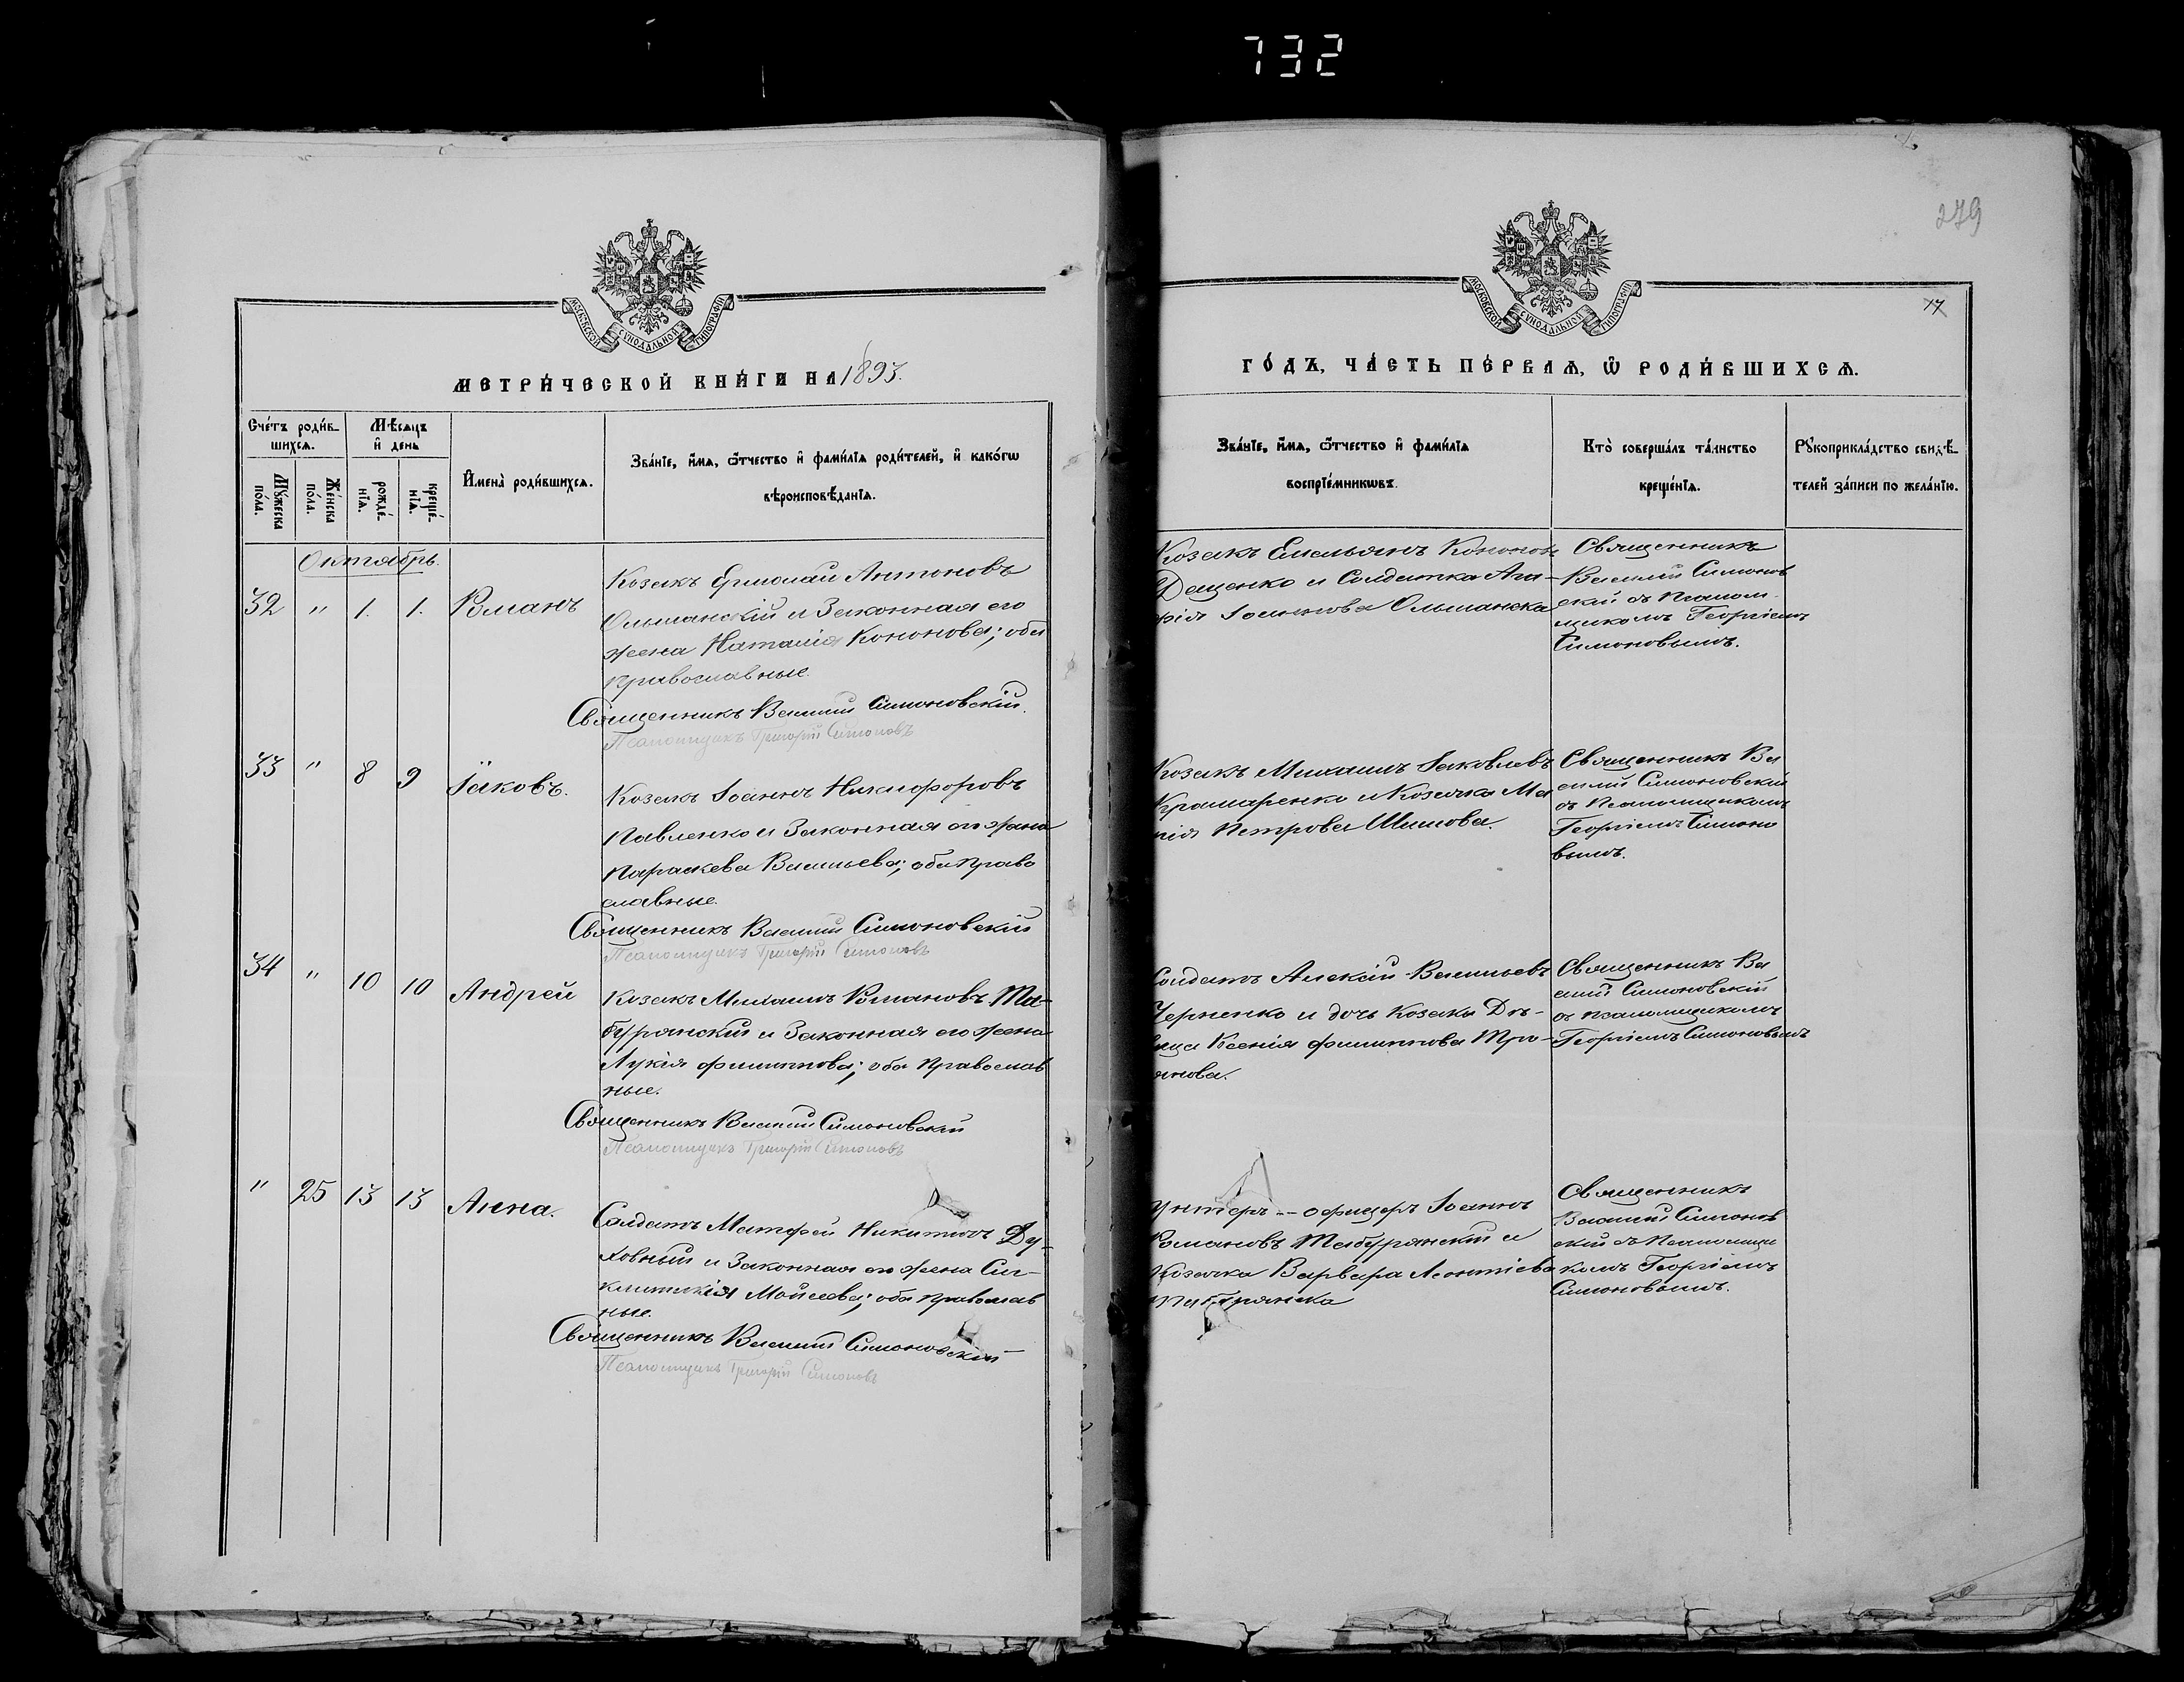 732
279
17
МОСКОВСКОЙ СѴНОДАЛЬНОЙ ТИПОГРАФІИ
МОСКОВСКОЙ СѴНОДАЛЬНОЙ ТИПОГРАФІИ
МЕТРИ́ЧЕСКОЙ КНИ́ГИ НА 1893.
ГО́ДЪ, ЧА́СТЬ ПЕ́РВАѦ, Ѡ РОДИ́ВШИХСѦ.
Сче́тъ роди́в-
шихсѧ.
Мѣ́сѧцъ
и҆ день
Мꙋ́жеска по́ла.
Же́нска по́ла.
рожде́-
нїѧ.
креще́-
нїѧ.
И҆мена̀ роди́вшихсѧ.
Зва́нїе, и҆́мѧ, ѻ҆́тчество и҆ фами́лїѧ роди́телей, и҆ како́гѡ
вѣроисповѣ́данїѧ.
Зва́нїе, и҆́мѧ, ѻ҆́тчество и҆ фами́лїѧ
воспрїе́мникѡвъ.
Кто̀ соверша́лъ та́инство
креще́нїѧ.
Рꙋкоприкла́дство свидѣ́-
телей за́писи по жела́нїю.
Октябрь.
32 " 1. 1. Романъ
Козакъ Ермолай Антоновъ
Ольшанскій и Законная его
жена Наталія Кононова; оба
православные.
Священникъ Василій Симоновскій.
Псаломщикъ Григорій Симоновъ
Козакъ Емельянъ Кононовъ
Яценко и Солдатка Ага-
фія Іоаннова Ольшанска
Священникъ
Василій Симонов
скій съ Псалом-
щикомъ Георгіемъ
Симоновымъ.
33 " 8 9 Іаковъ.
Козакъ Іоаннъ Никифоровъ
Павленко и Законная его жена
Параскева Васильева; оба право
славные.
Священникъ Василій Симоновскій
Псаломщикъ Григорій Симоновъ
Козакъ Михаилъ Іаковлевъ
Крамаренко и Козачка Ма
рія Петрова Шилова.
Священникъ Ва
силій Симоновскій
съ Псаломщикомъ
Георгіемъ Симоно
вымъ.
34 " 10 10 Андрей
Козакъ Михаилъ Романовъ Та-
бурянскій и Законная его жена
Лукія Филиппова; оба Православ
ные.
Священникъ Василій Симоновскій
Псаломщикъ Григорій Симоновъ
Солдатъ Алексій Васильевъ
Черненко и дочь Козака Дѣ-
вица Ксенія Филиппова Тро-
янова.
Священникъ Ва
силій Симоновскій
съ псаломщикомъ
Георгіемъ Симоновымъ
" 25 13 13 Анна.
Солдатъ Матфей Никитинъ Ду-
ховный и Законная его жена Син-
клитикія Мойсеева; оба православ
ные.
Священникъ Василій Симоновскій
Псаломщикъ Григорій Симоновъ
Унтеръ-офицеръ Іоаннъ
Романовъ Табурянскій и
Козачка Варвара Леонтіева
Табурянска
Священникъ
Василій Симонов
скій съ Псаломщи
комъ Георгіемъ
Симоновымъ.